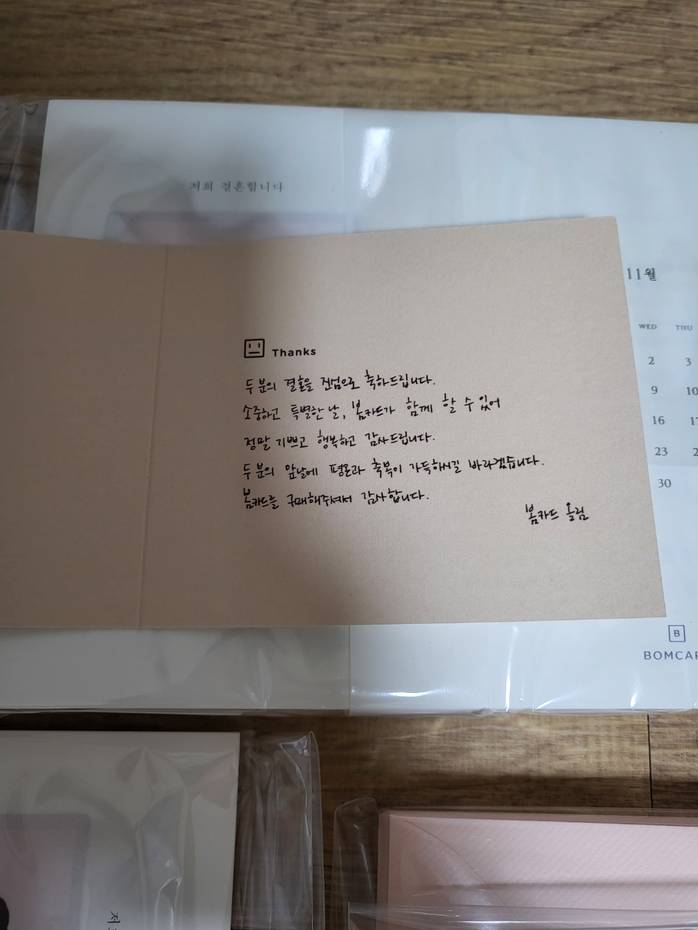 저희 결혼합니다
11월
WED THU
2 3
9 10
16
23
30
Thanks
두 분의 결혼을 진심으로 축하드립니다.
소중하고 특별한 날, 봄카드가 함께 할 수 있어
정말 기쁘고 행복하고 감사드립니다.
두 분의 앞날에 평온과 축복이 가득하시길 바라겠습니다.
봄카드를 구매해주셔서 감사합니다.
봄카드 올림
B
BOMCAR